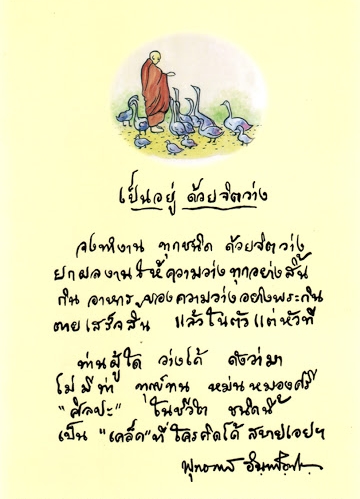 เป็นอยู่ ด้วยจิตว่าง
จงทำงาน ทุกชนิด ด้วยจิตว่าง
ยกผลงานให้ความว่างทุกอย่างสิ้น
กินอาหารของความว่างอย่างพระกิน
ตายเสร็จสิ้น แล้วในตัวแต่หัวที
ท่านผู้ใด ว่างได้ ดังว่ามา
ไม่มีท่า ทุกข์ทน หม่นหมองศรี
"ศิลปะ" ในชีวิต ชนิดนี้
เป็น "เคล็ด" ที่ใครคิดได้ สบายเอยฯ
พุทธทาส อินทปัญโญ